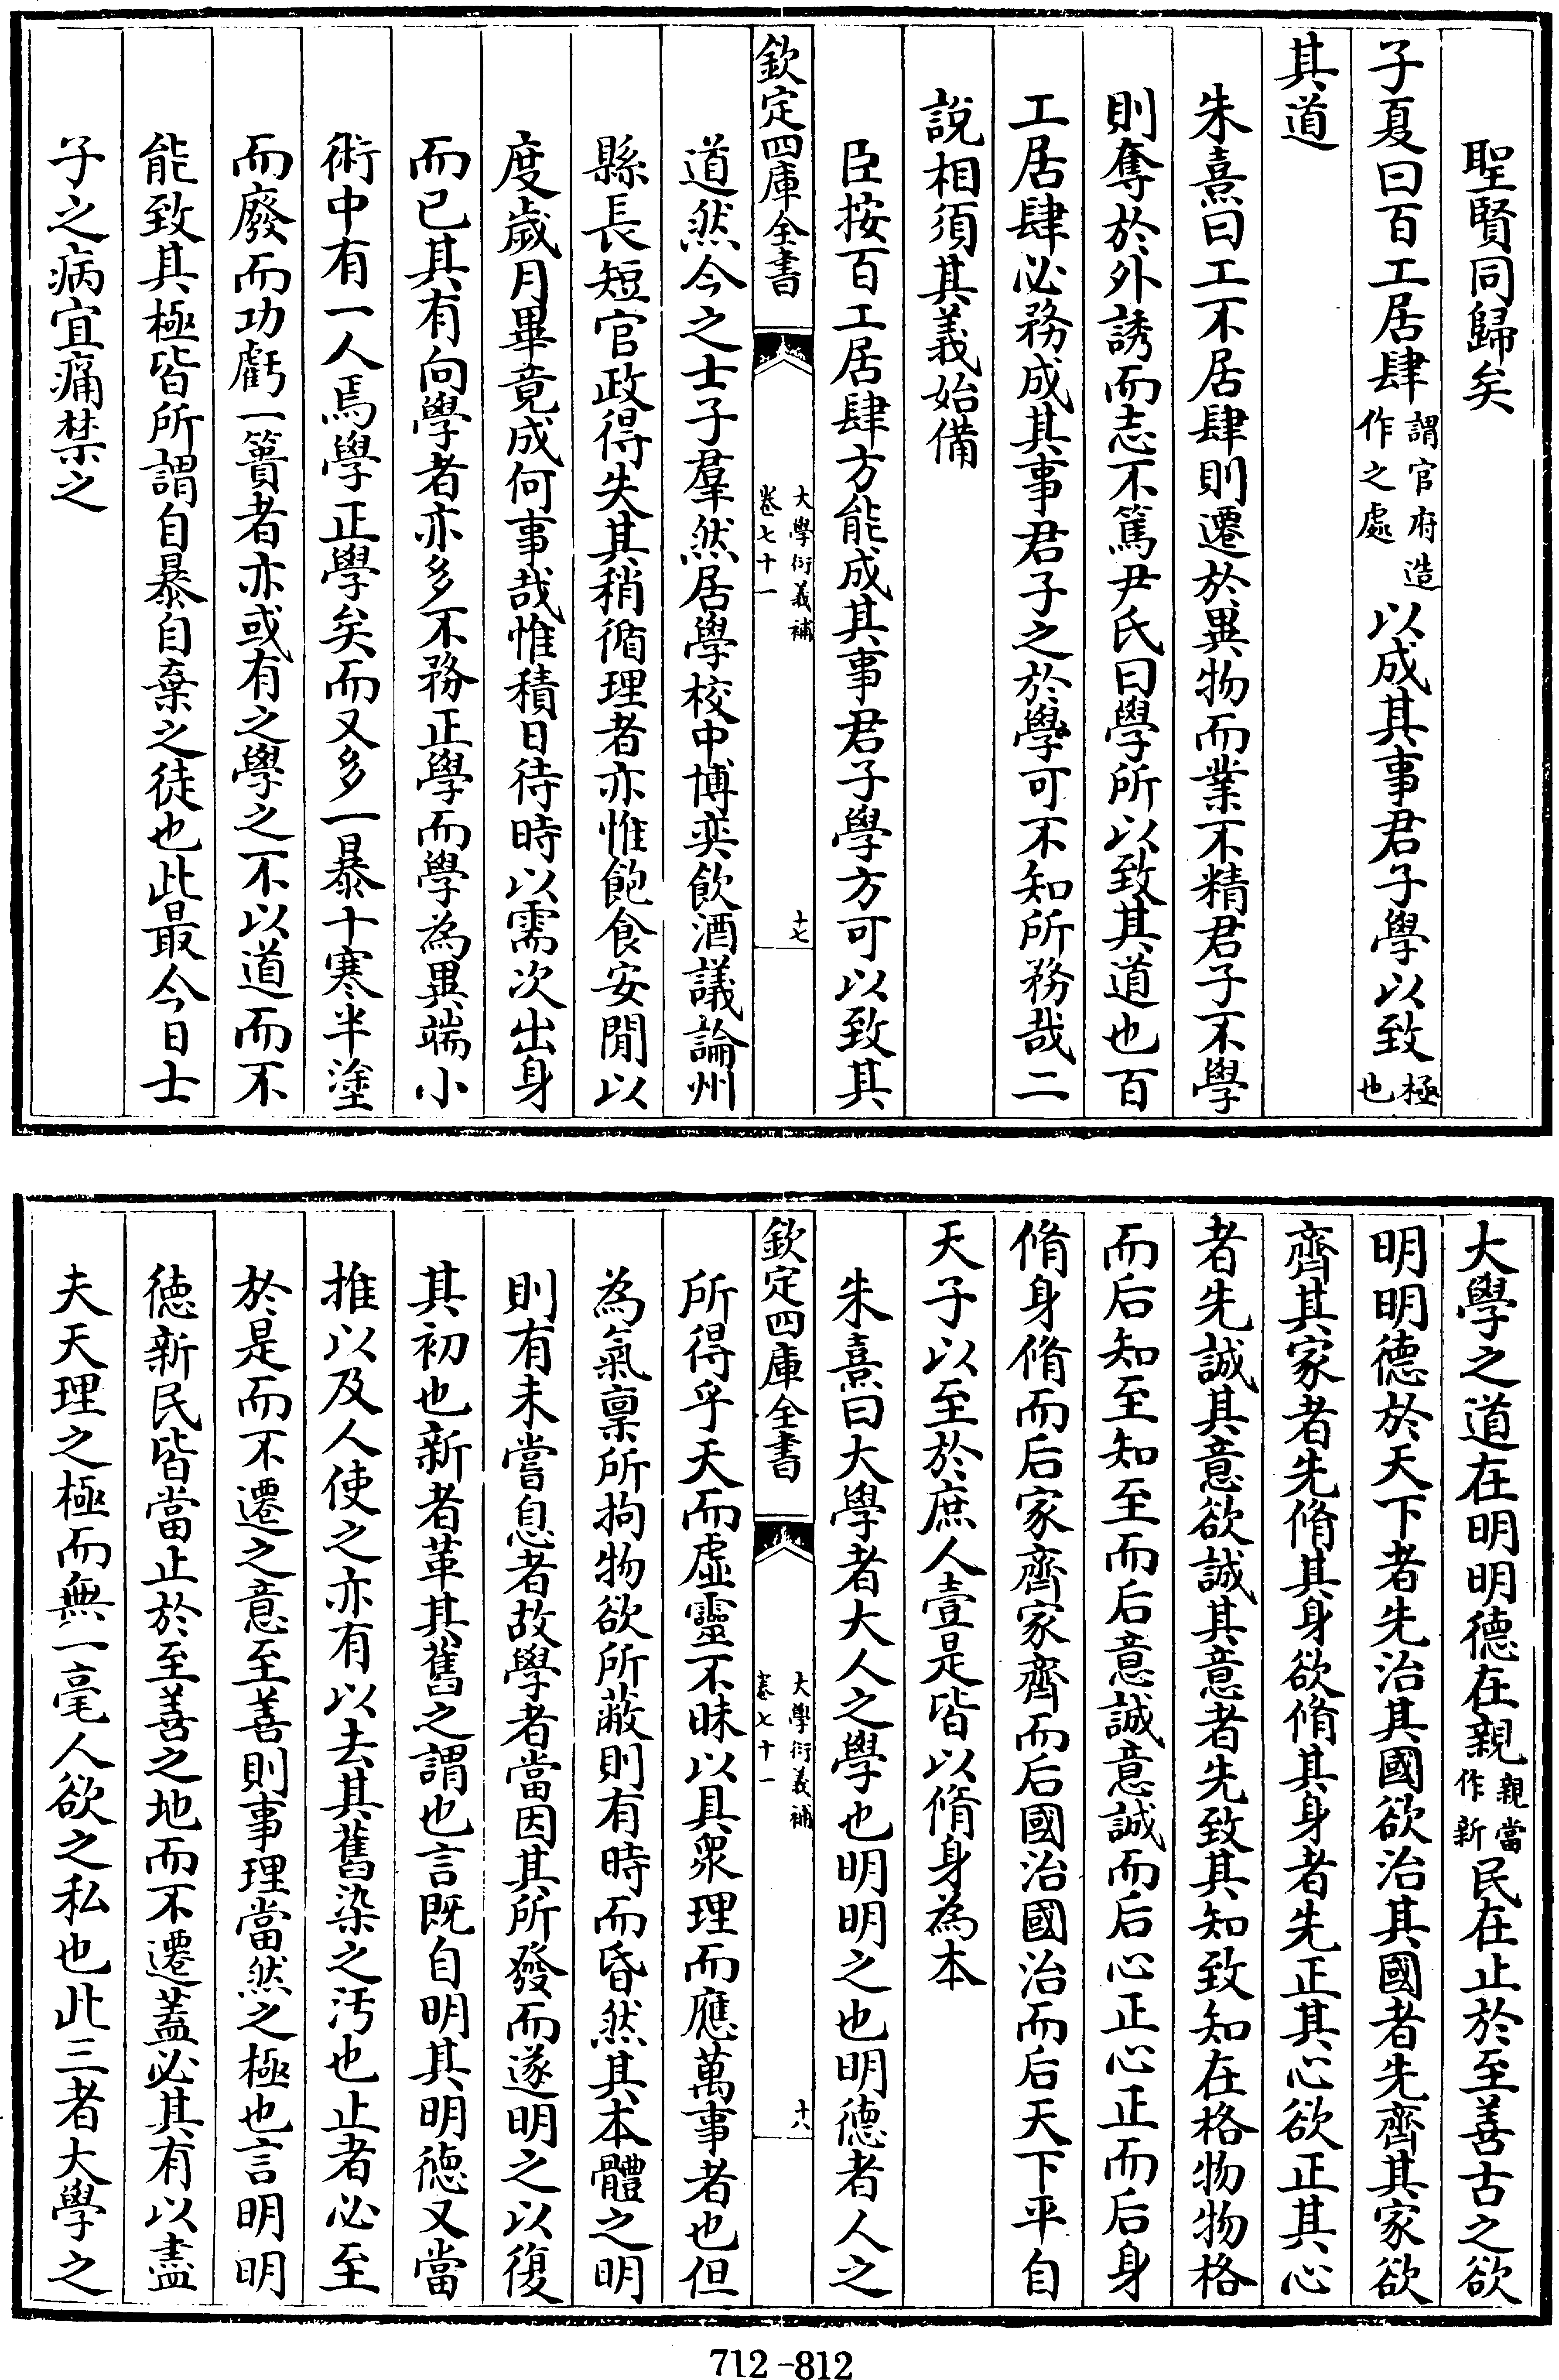 聖賢同歸矣
子夏曰百工居肆謂官府造作之處以成其事君子學以致極也
其道
朱熹曰工不居肆則遷於異物而業不精君子不學
則奪於外誘而志不篤尹氏曰學所以致其道也百
工居肆必務成其事君子之於學可不知所務哉二
說相須其義始備
臣按百工居肆方能成其事君子學方可以致其
欽定四庫全書
大學衍義補
卷七十一
十七
道然今之士子羣然居學校中博奕飲酒議論州
縣長短官政得失其稍循理者亦惟飽食安閒以
度歲月畢竟成何事哉惟積日待時以需次出身
而已其有向學者亦多不務正學而學為異端小
術中有一人焉學正學矣而又多一暴十寒半塗
而廢而功虧一簣者亦或有之學之不以道而不
能致其極皆所謂自暴自棄之徒也此最今日士
子之病宜痛禁之
大學之道在明明德在親親當作新民在止於至善古之欲
明明德於天下者先治其國欲治其國者先齊其家欲
齊其家者先脩其身欲脩其身者先正其心欲正其心
者先誠其意欲誠其意者先致其知致知在格物物格
而后知至知至而后意誠意誠而后心正心正而后身
脩身脩而后家齊家齊而后國治國治而后天下平自
天子以至於庶人壹是皆以脩身為本
朱熹曰大學者大人之學也明明之也明德者人之
欽定四庫全書
大學衍義補
卷七十一
十八
所得乎天而虛靈不昧以具衆理而應萬事者也但
為氣稟所拘物欲所蔽則有時而昏然其本體之明
則有未嘗息者故學者當因其所發而遂明之以復
其初也新者革其舊之謂也言既自明其明德又當
推以及人使之亦有以去其舊染之汚也止者必至
於是而不遷之意至善則事理當然之極也言明明
德新民皆當止於至善之地而不遷蓋必其有以盡
夫天理之極而無一毫人欲之私也此三者大學之
712-812